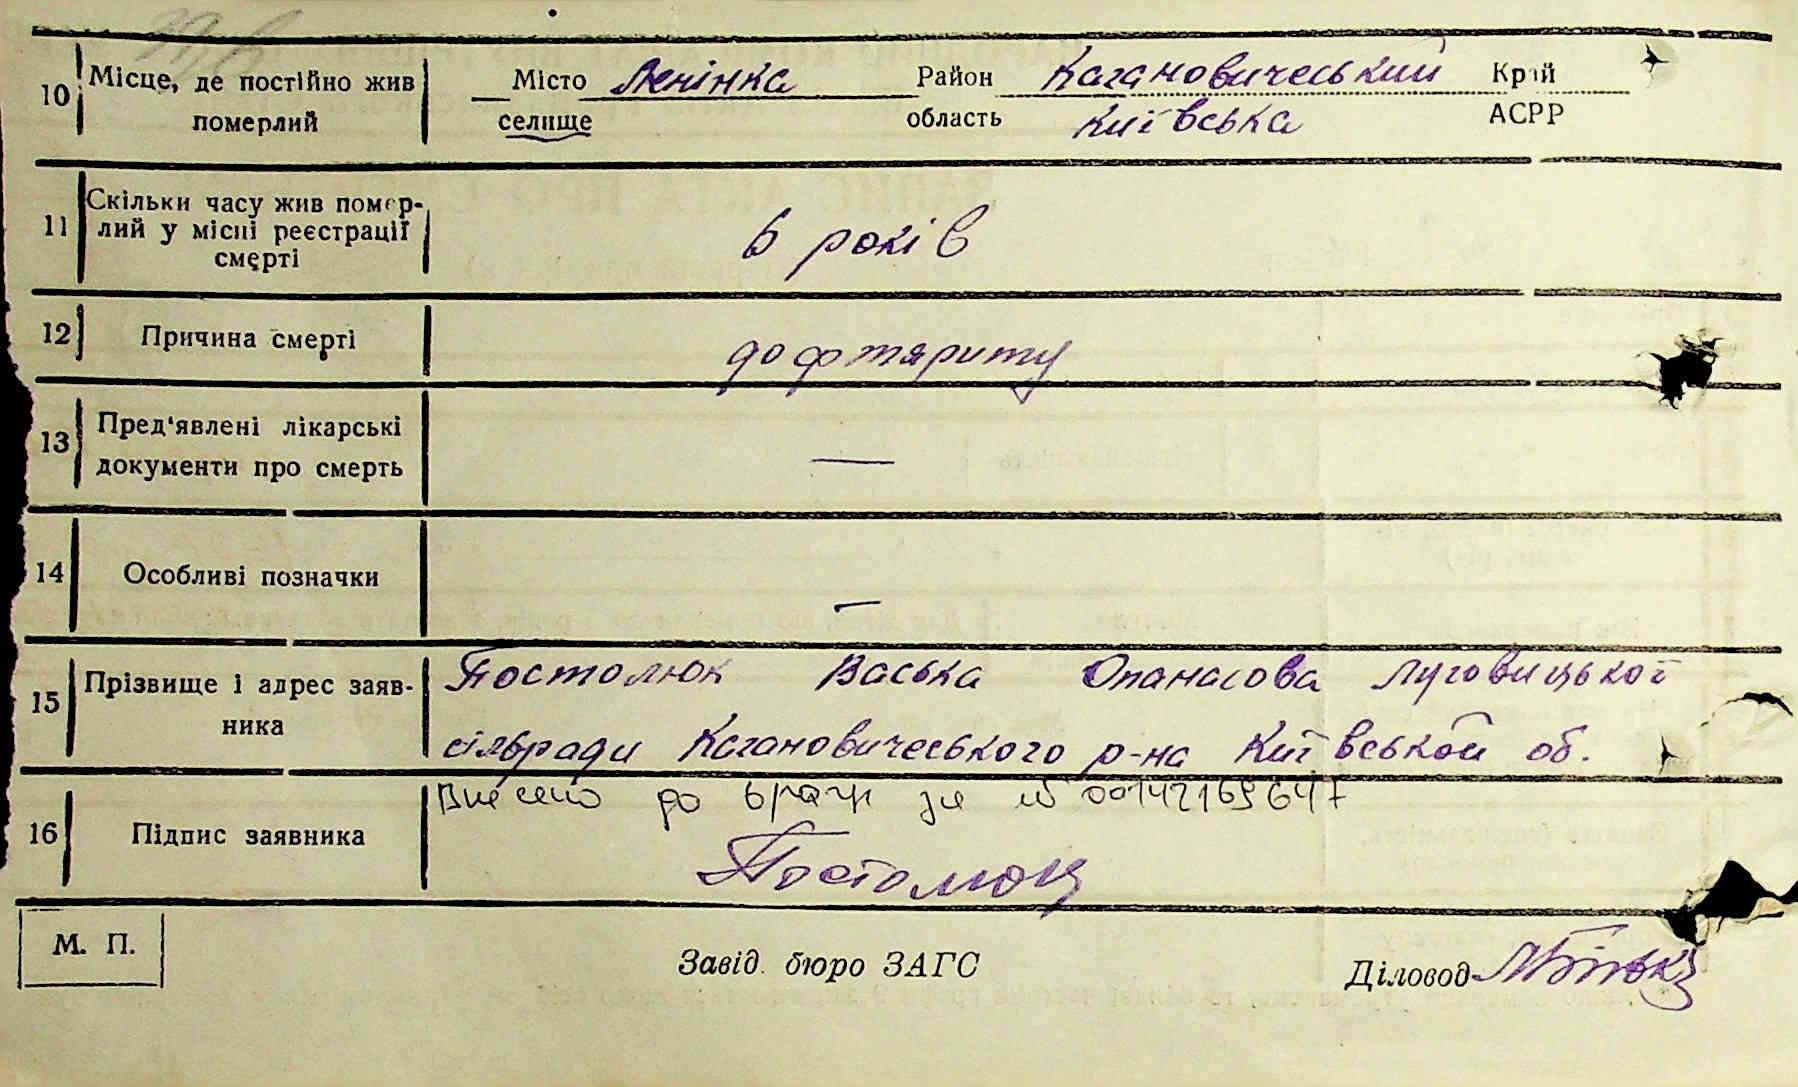 10 Місце, де постійно жив Місто Ленінка Район Кагановичеський Край
померлий селище область Київська АСРР
11 Скільки часу жив помер-
лий у місці реєстрації 6 років
смерті
12 Причина смерті дофтяриту
13 Пред'явлені лікарські
документи про смерть —
14 Особливі позначки —
15 Прізвище і адрес заяв- Постолюк Васька Опанасова Луговицької
ника сільради Кагановичеського р-на Київськой об.
Внесено до за № 00142169647
16 Підпис заявника Постолюк
М. П. Завід. бюро ЗАГС Діловод